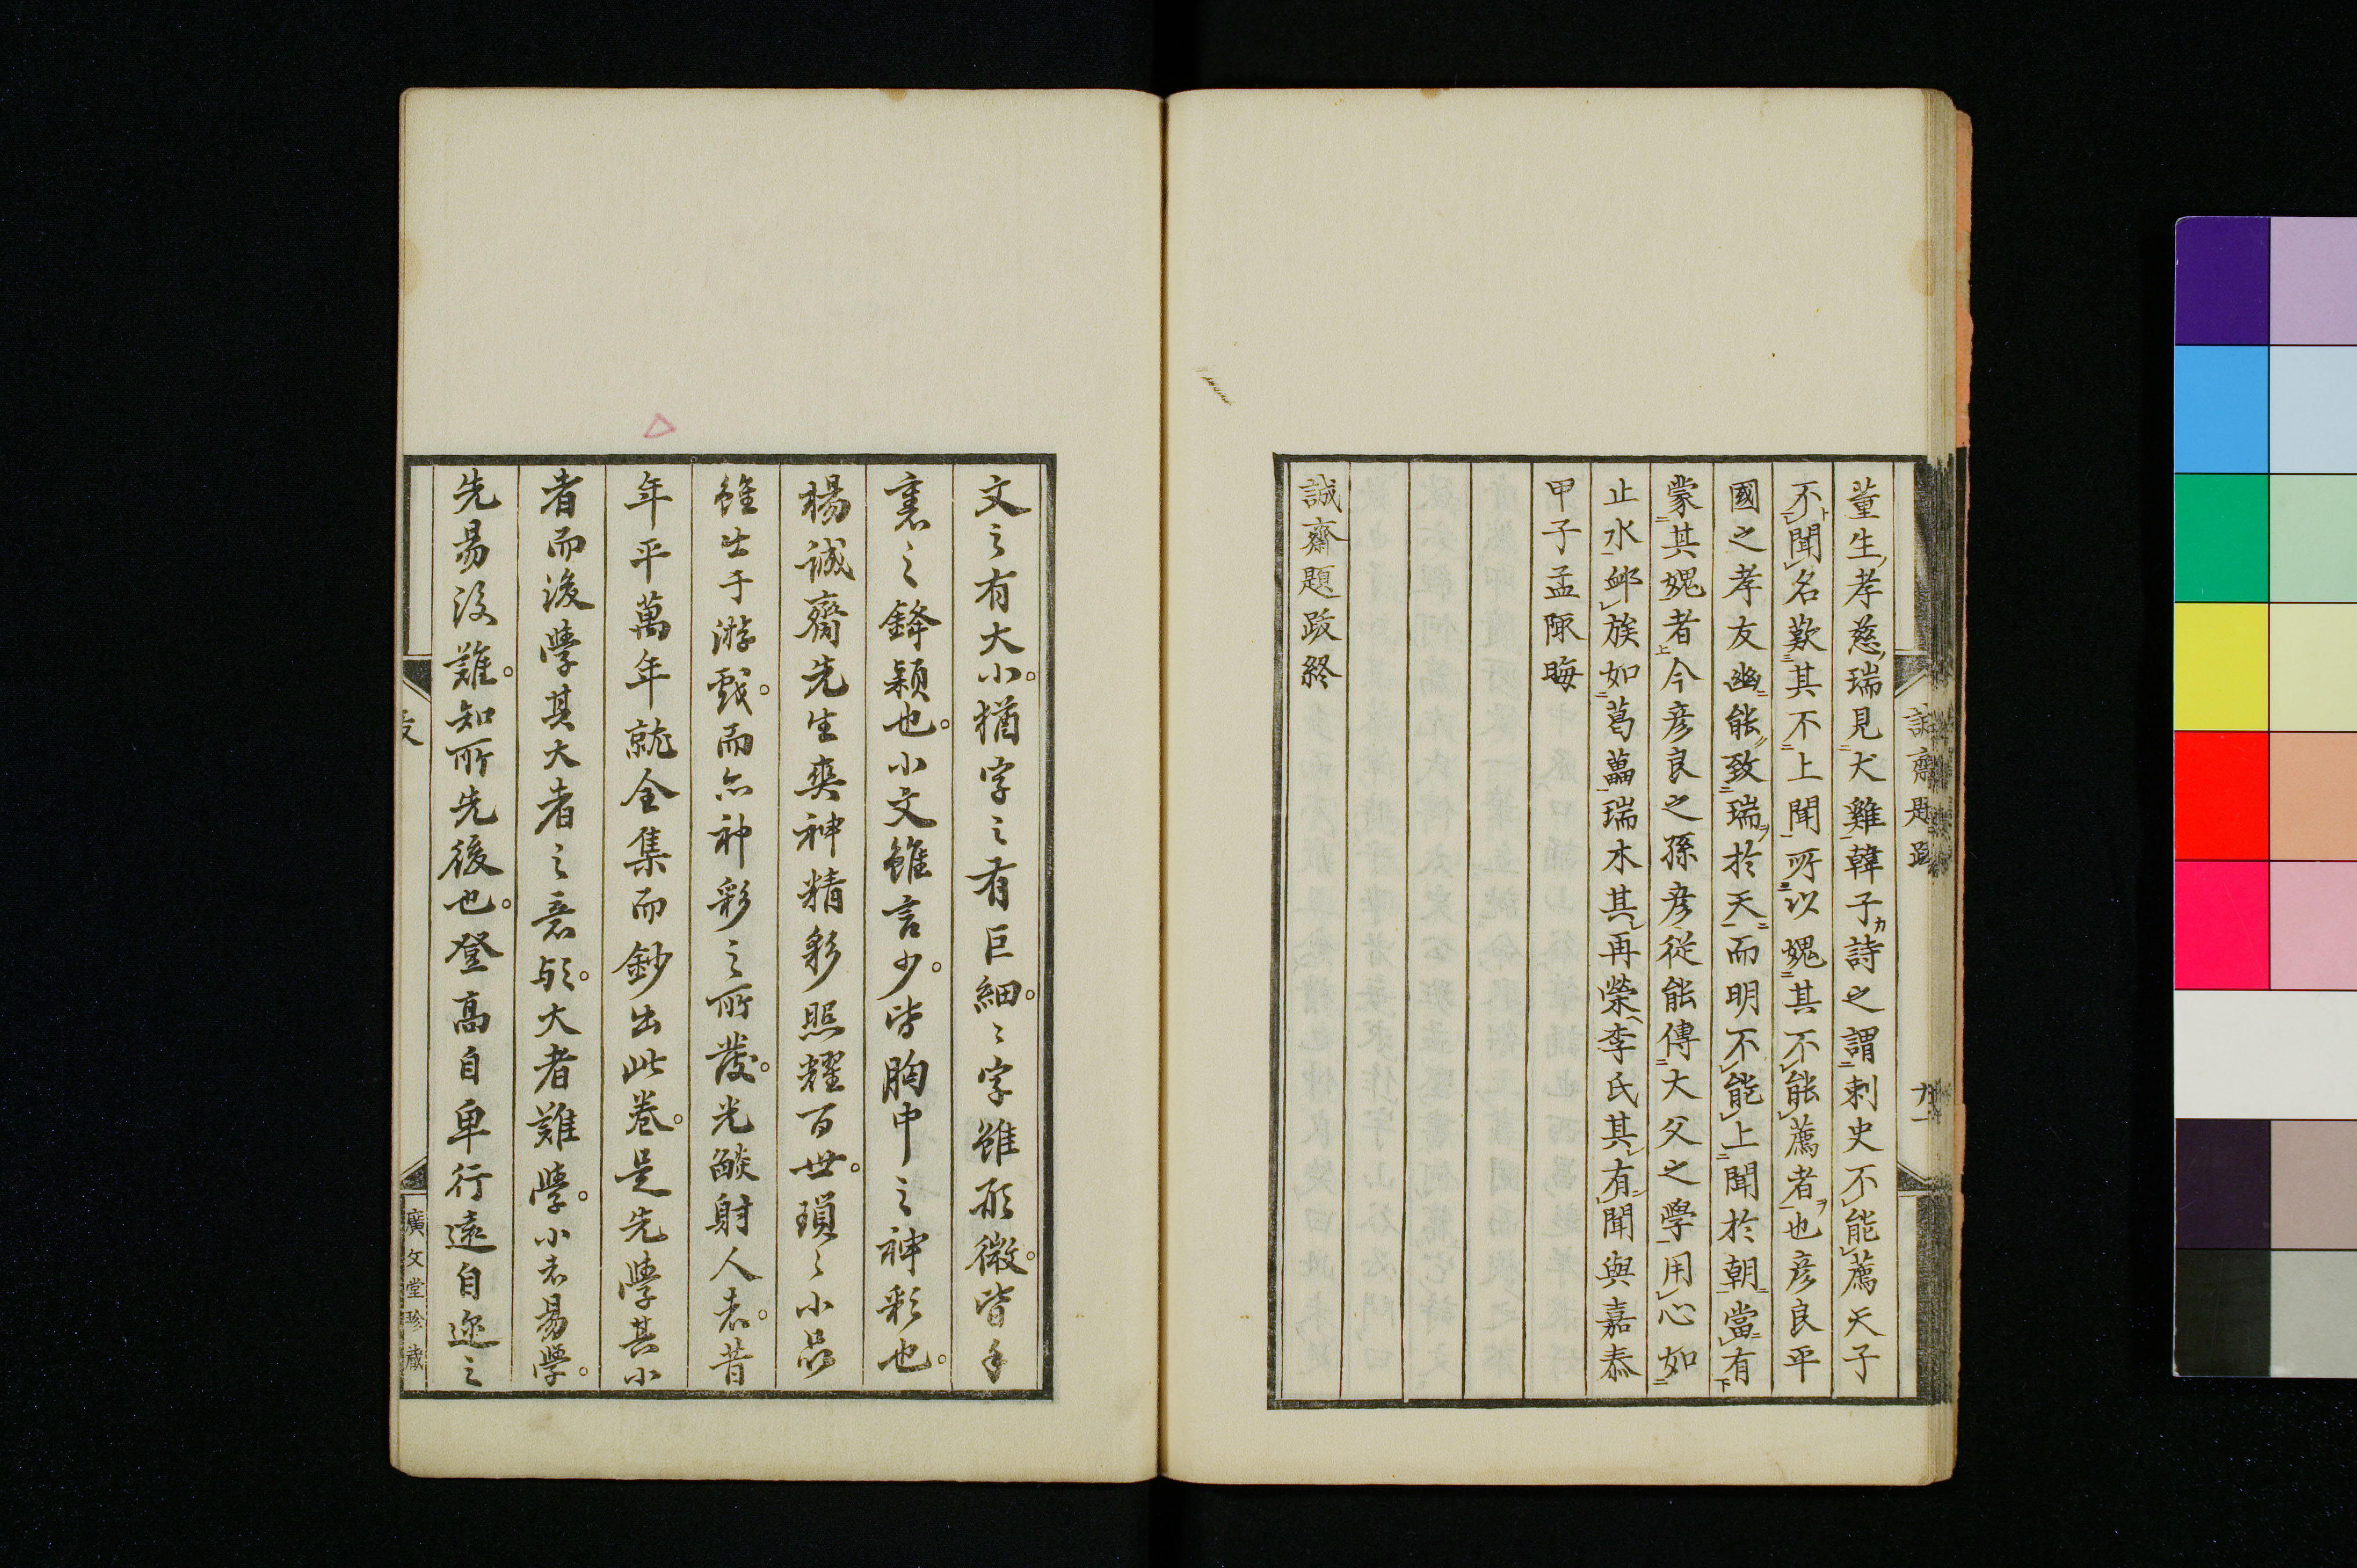 董生孝慈瑞見犬雞韓子詩之謂刺史不能薦天子
不聞名歎其不上聞所以媿其不能薦者也彦良平
國之孝友幽能致瑞於天而明不能上聞於朝當有
蒙其媿者今彦良之孫彦從能傳大父之學用心如
止水郷族如葛藟瑞木其再榮李氏其有聞與嘉泰
甲子孟陬晦
誠齋題跋終
文之有大小。猶字之有巨細。〻字雖形微。皆手
裏之鋒穎也。小文雖言少。皆胸中之神彩也。
楊誠齋先生奕神精彩照耀百世。瑣〻小品
雖出于游戲。而亦神彩之所發。光燄射人者。昔
年平萬年就全集而鈔出此卷。是先學其小
者而後學其大者之意歟。大者難學。小者易學。
先易後難。知所先後也。登高自卑行遠自邇之
廣文堂珍蔵